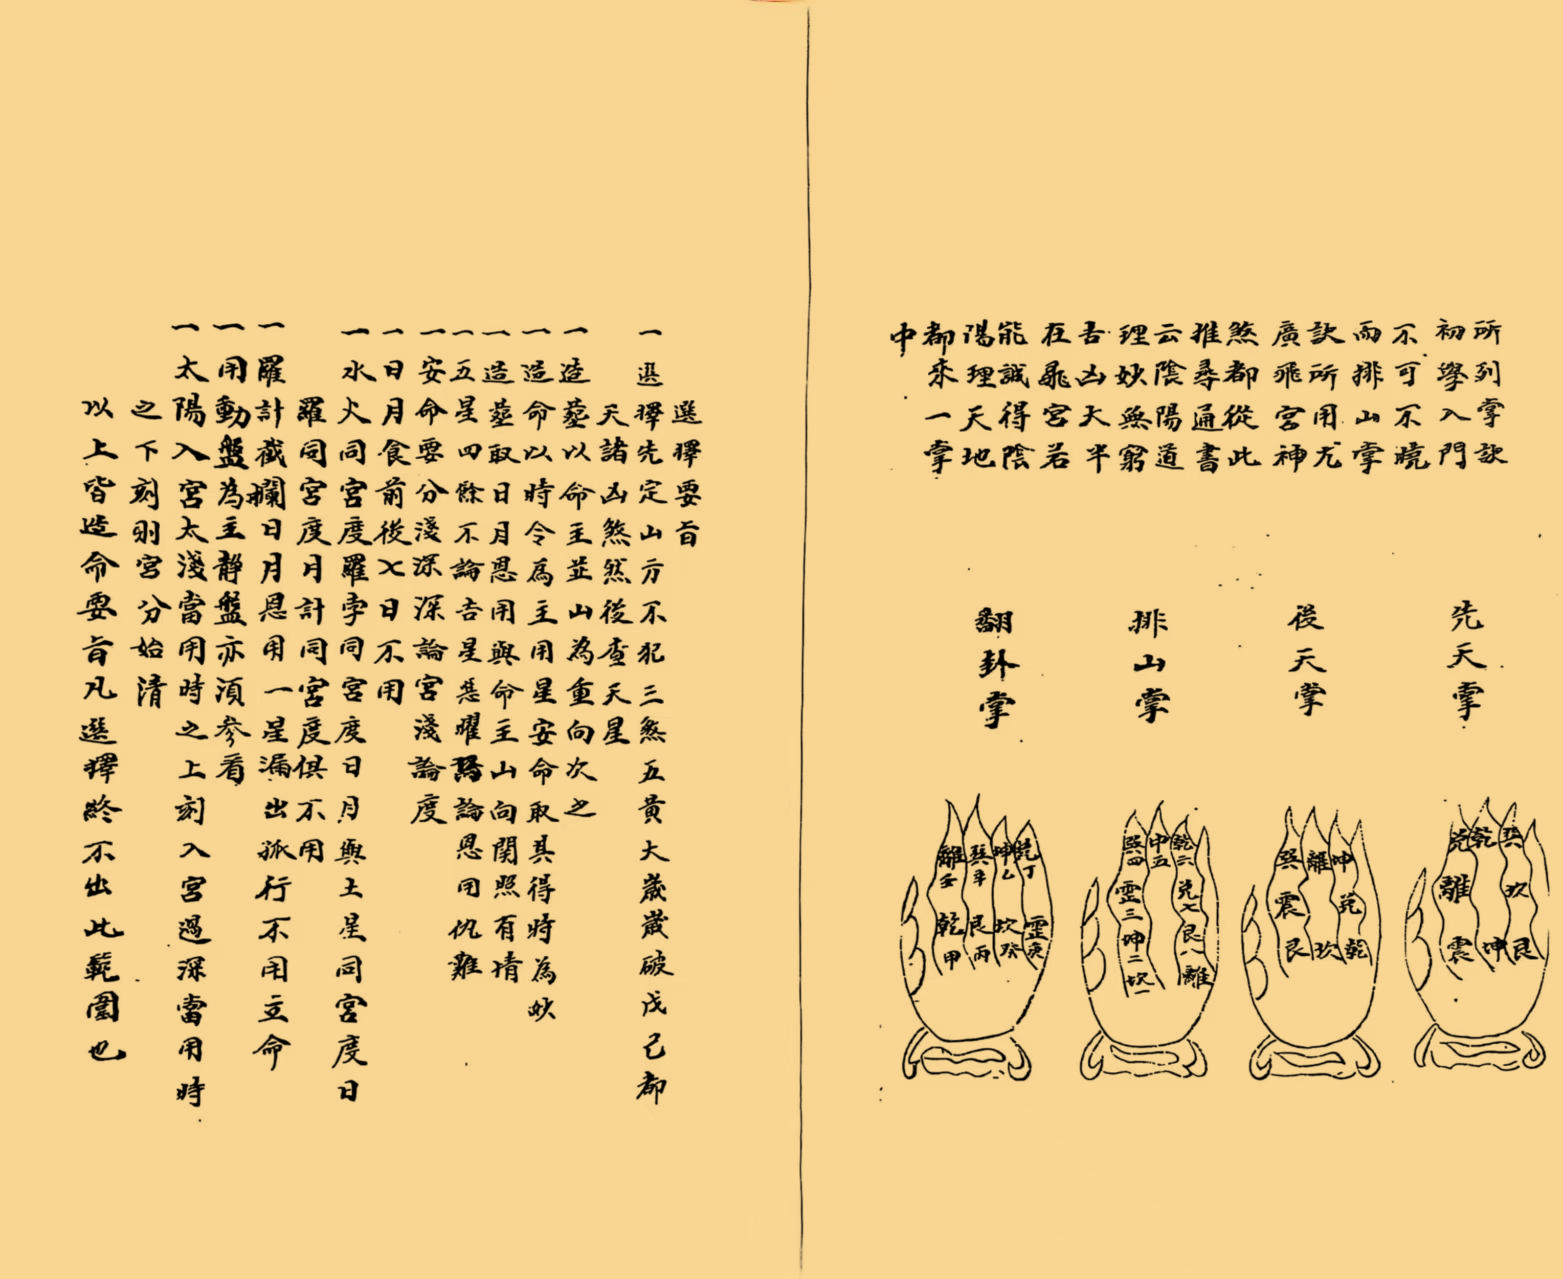 所列掌訣
初學入門
不可不曉
而排山掌
訣所用尤
廣飛宮神
煞都從此
推尋通書
云陰陽道
理妙無窮
吉凶大半
在飛宮若
能識得陰
陽理天地
都來一掌
中
先天掌
後天掌
排山掌
翻卦掌
兌 乾 巽
離 坎
震 坤 艮
巽 離 坤
震 兌
艮 坎 乾
巽四 中五 乾六
震三 兌七
坤二 艮八
坎一 離
離壬 巽辛 坤乙 兌丁
乾甲 艮丙 坎癸 震庚
選擇要旨
一選擇先定山方不犯三煞五黃大歲歲破戊己都
天諸凶煞然後查天星
一造塟以命主並山為重向次之
一造命以時令為主用星安命取其得時為妙
一造塟取日月恩用與命主山向関照有情
一五星四餘不論吉星惡曜只論恩用仇難
一安命要分淺深深論宮淺論度
一日月食前後七日不用
一水火同宮度羅孛同宮度日月與土星同宮度日
羅同宮度月計同宮度俱不用
一羅計截攔日月恩用一星漏出孤行不用立命
一用動盤為主靜盤亦須參看
一太陽入宮太淺當用時之上刻入宮過深當用時
之下刻則宮分始清
以上皆造命要旨凡選擇終不出此範圍也